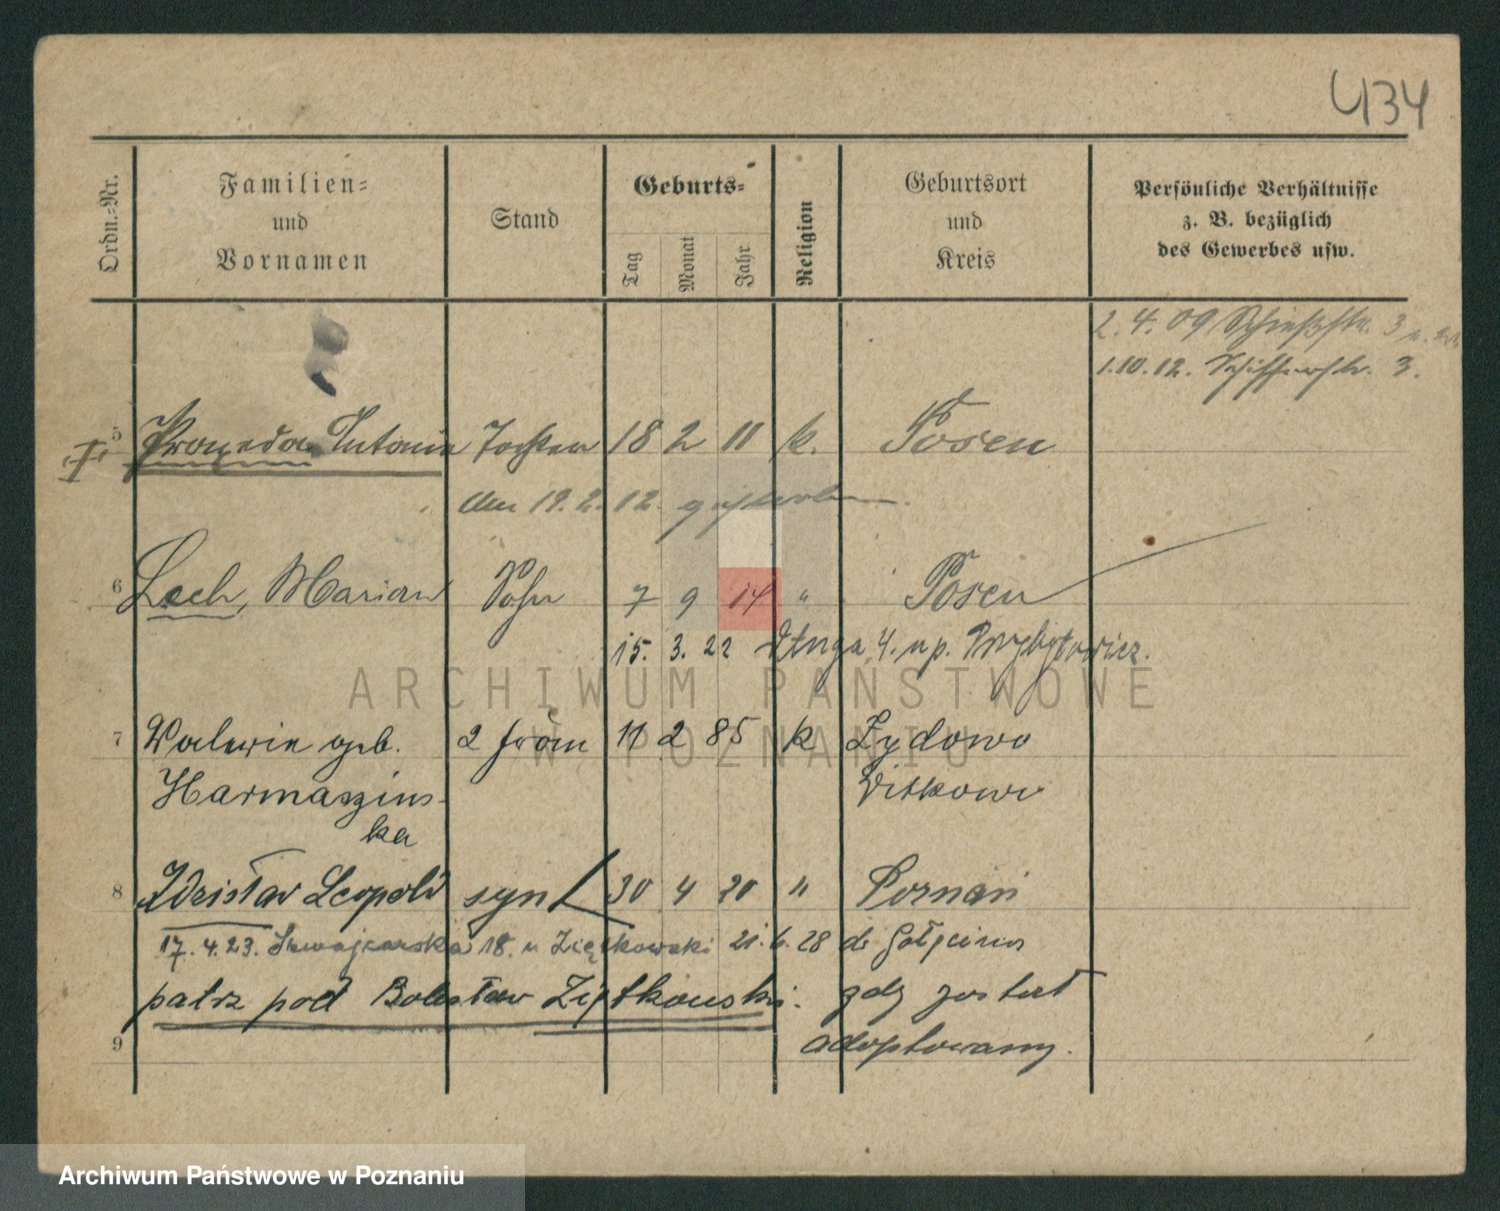 434
Ordn.-Nr.
Familien-
und
Vornamen
Stand
Geburts-
Tag
Monat
Jahr
Religion
Geburtsort
und
Kreis
Persönliche Verhältnisse
z. B. bezüglich
des Gewerbes usw.
2. 4. 09 3
1.10.12. Schifferstr. 3.
5 Antonie Tochter 18 2 11 k. Posen
am 19. 2. 12. gestorben
6 Lech, Marian Sohn 7 9 14 " Posen
15. 3. 22 Długa 4. u p. Przybyłowicz.
7 Walerie geb. 2 frau 11 2 85 k Żydowo
Harmaszins- Witkowo
ka
8 Zdzisław Leopold syn 30 4 20 " Poznań
17. 4. 23. Szwajcarska 18. u Ziętkowski 21. 6. 28 do
patrz pod Bolesław Ziętkowski. gdyż został
9 adoptowany.
ARCHIWUM PAŃSTWOWE
W POZNANIU
Archiwum Państwowe w Poznaniu